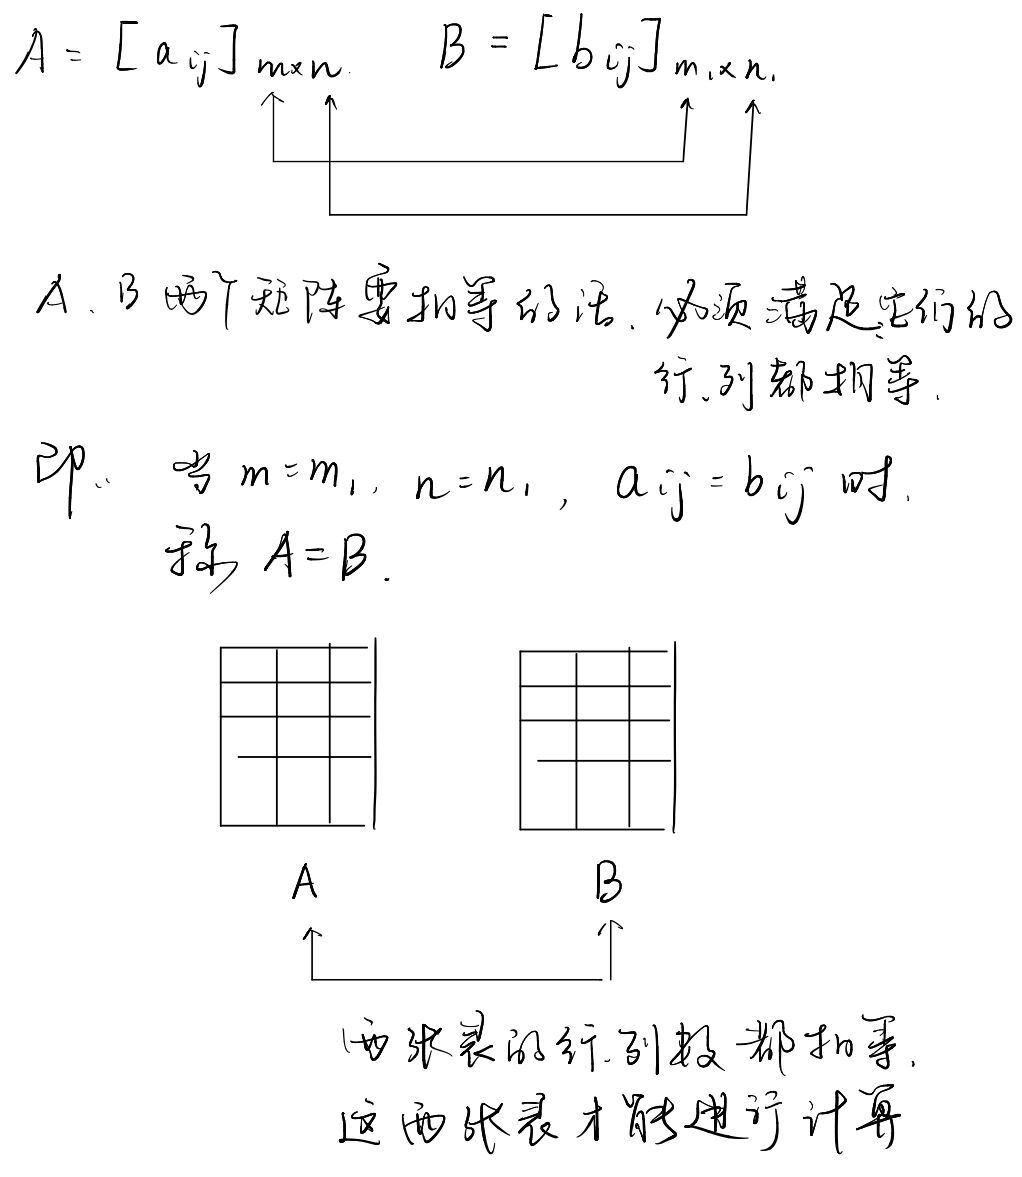 A = [a ij] m×n   B = [b ij] m₁×n₁
A、B 两个矩阵要相等的话、必须满足它们的
行、列都相等.
即: 当 m=m₁, n=n₁, a ij = b ij 时,
称 A=B.
A   B
两张表的行、列数都相等,
这两张表才能进行计算